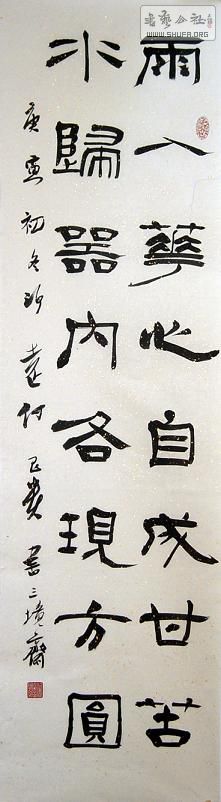 書藝公社
WWW.SHUFA.ORG
雨入華心自成甘苦
水歸器內各現方圓
庚寅初冬
書三境齋